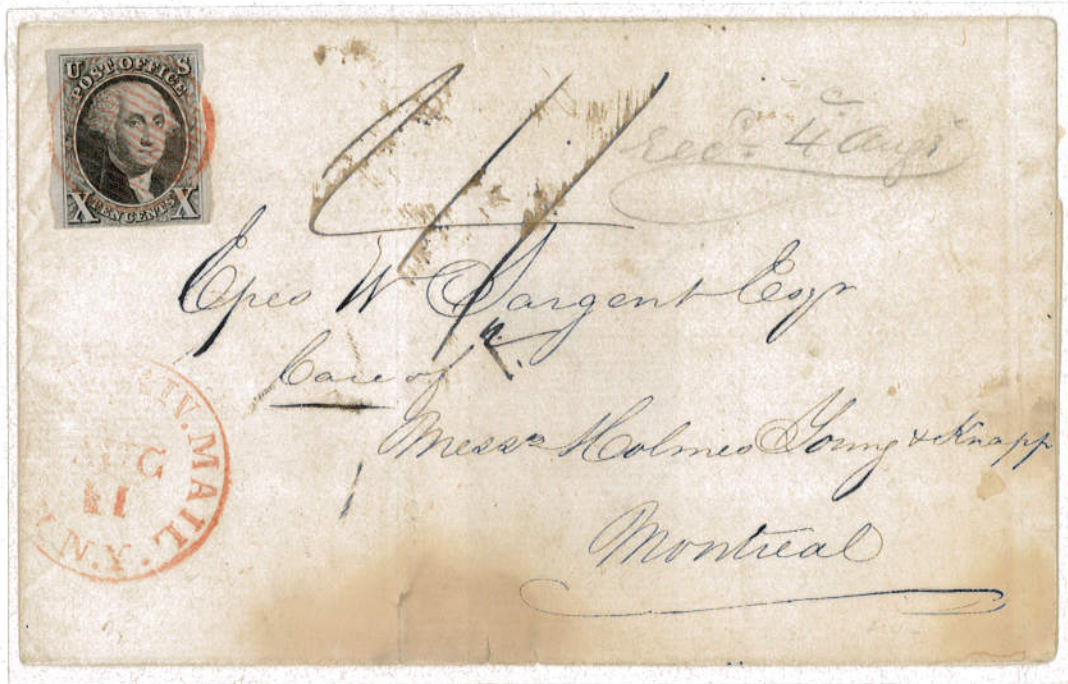 U S
POST OFFICE
X TEN CENTS X
Recd 4 Augt
Epes W Sargent Esqr
Care of
Messrs Holmes Young & Knapp
Montreal
RIV. MAIL
AUG
11
N.Y.